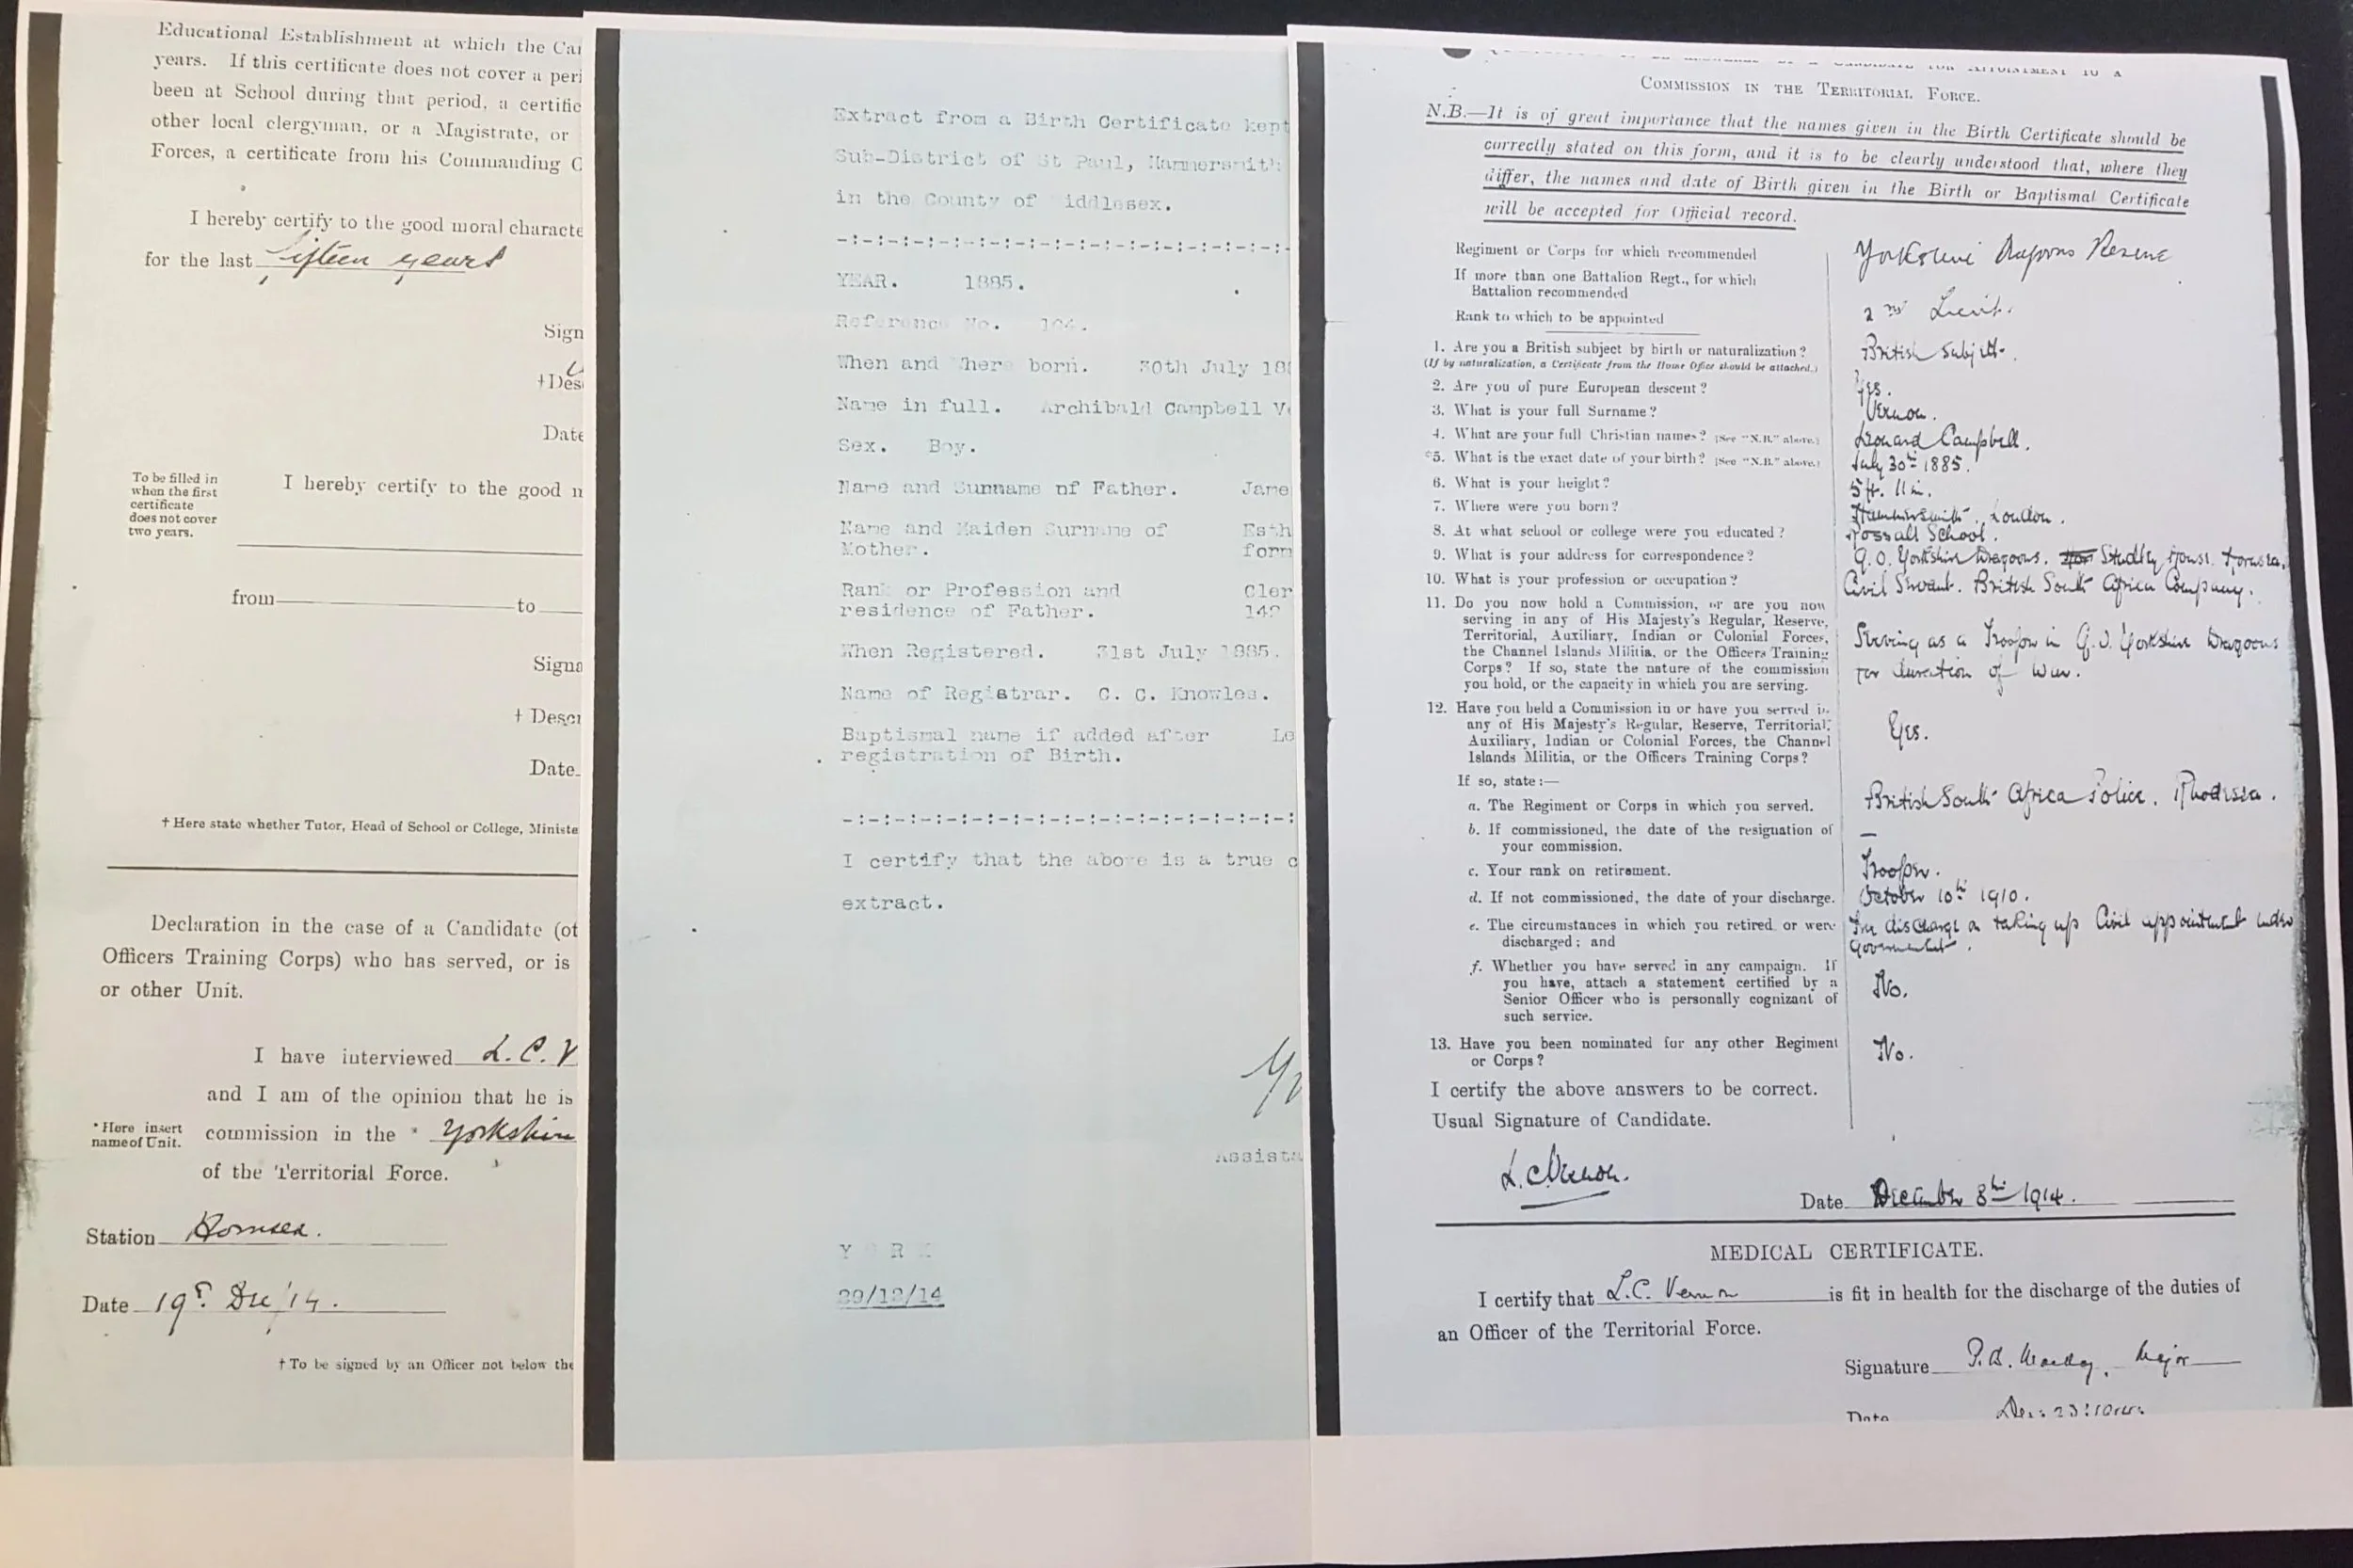 Educational Establishment at which the Ca
years. If this certificate does not cover a peri
been at School during that period, a certific
other local clergyman, or a Magistrate, or
Forces, a certificate from his Commanding
I hereby certify to the good moral characte
for the last fifteen years
Sign
† Des
Date
To be filled in
when the first
certificate
does not cover
two years.
I hereby certify to the good
from to
Signa
† Descr
Date
† Here state whether Tutor, Head of School or College, Ministe
Declaration in the case of a Candidate (ot
Officers Training Corps) who has served, or is
or other Unit.
I have interviewed L. C. V
and I am of the opinion that he is
* Here insert
name of Unit.
commission in the * Yorkshire
of the Territorial Force.
Station Hornsea.
Date 19th Dec '14.
† To be signed by an Officer not below the
Extract from a Birth Certificate kept
Sub-District of St Paul, Hammersmith
in the County of Middlesex.
-:-:-:-:-:-:-:-:-:-:-:-:-:-:-:-:-
YEAR. 1885.
Reference No.
When and Where born. 30th July 18
Name in full. Archibald Campbell Ve
Sex. Boy.
Name and Surname of Father. Jame
Name and Maiden Surname of Esth
Mother. form
Rank or Profession and Cler
residence of Father. 142
When Registered. 31st July 1885.
Name of Registrar. C. C. Knowles.
Baptismal name if added after Le
registration of Birth.
-:-:-:-:-:-:-:-:-:-:-:-:-:-:-:-:-
I certify that the above is a true c
extract.
Assista
YORK
29/12/14
COMMISSION IN THE TERRITORIAL FORCE.
N.B.—It is of great importance that the names given in the Birth Certificate should be
correctly stated on this form, and it is to be clearly understood that, where they
differ, the names and date of Birth given in the Birth or Baptismal Certificate
will be accepted for Official record.
Regiment or Corps for which recommended Yorkshire Dragoons Reserve
If more than one Battalion Regt., for which
Battalion recommended
Rank to which to be appointed 2nd Lieut.
1. Are you a British subject by birth or naturalization? British Subject.
(If by naturalization, a Certificate from the Home Office should be attached.)
2. Are you of pure European descent? Yes.
3. What is your full Surname? Vernon.
4. What are your full Christian names? [See "N.B." above.] Leonard Campbell.
*5. What is the exact date of your birth? [See "N.B." above.] July 30th 1885.
6. What is your height? 5 ft. 11 in.
7. Where were you born? Hammersmith, London.
8. At what school or college were you educated? Rossall School.
9. What is your address for correspondence? Q.O. Yorkshire Dragoons. Studley House. Hornsea.
10. What is your profession or occupation? Civil Servant. British South Africa Company.
11. Do you now hold a Commission, or are you now
serving in any of His Majesty's Regular, Reserve,
Territorial, Auxiliary, Indian or Colonial Forces,
the Channel Islands Militia, or the Officers Training
Corps? If so, state the nature of the commission
you hold, or the capacity in which you are serving.
Serving as a Trooper in Q.O. Yorkshire Dragoons
for duration of War.
12. Have you held a Commission in or have you served in
any of His Majesty's Regular, Reserve, Territorial,
Auxiliary, Indian or Colonial Forces, the Channel
Islands Militia, or the Officers Training Corps?
Yes.
If so, state:—
a. The Regiment or Corps in which you served. British South Africa Police, Rhodesia.
b. If commissioned, the date of the resignation of
your commission. —
c. Your rank on retirement. Trooper.
d. If not commissioned, the date of your discharge. October 10th 1910.
e. The circumstances in which you retired or were
discharged; and
discharge on taking up Civil appointment under
Government.
f. Whether you have served in any campaign. If
you have, attach a statement certified by a
Senior Officer who is personally cognizant of
such service.
No.
13. Have you been nominated for any other Regiment
or Corps?
No.
I certify the above answers to be correct.
Usual Signature of Candidate.
L.C. Vernon.
Date December 8th 1914.
MEDICAL CERTIFICATE.
I certify that L.C. Vernon is fit in health for the discharge of the duties of
an Officer of the Territorial Force.
Signature Major
Date